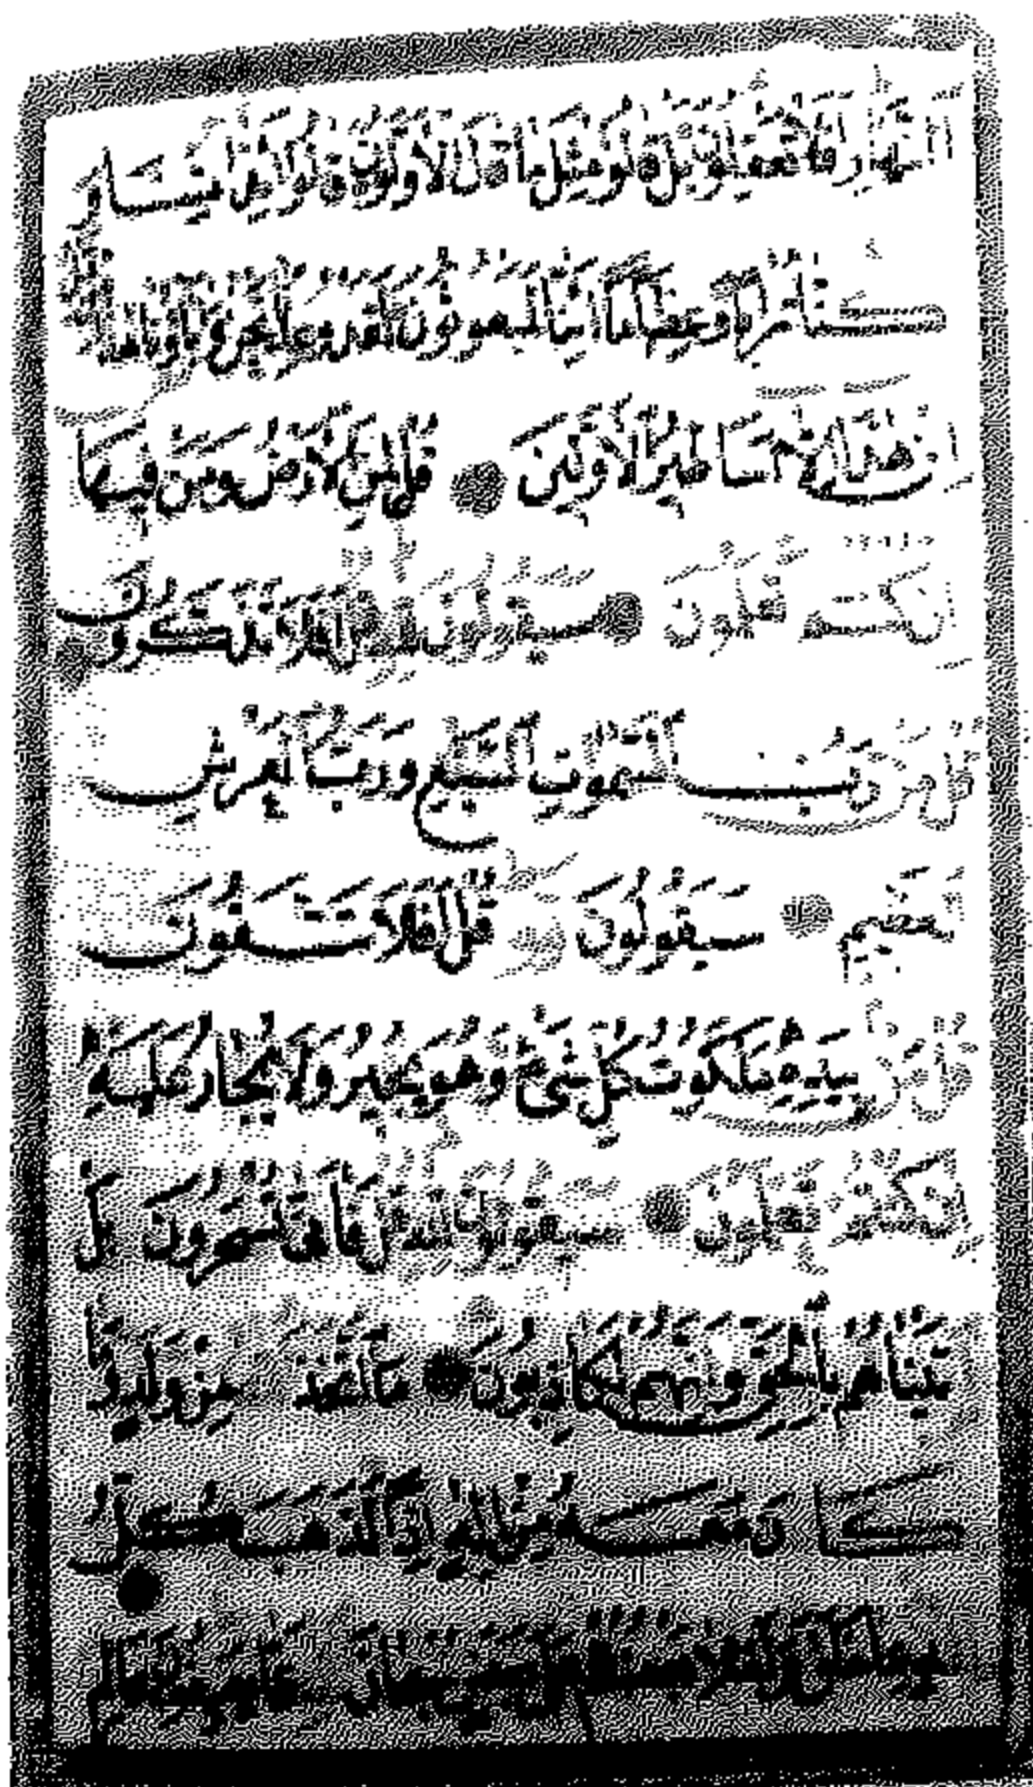 النَّهَارِ أَفَلَا تَعْقِلُونَ بَلْ قَالُوا مِثْلَ مَا قَالَ الْأَوَّلُونَ قَالُوا أَئِذَا مِتْنَا وَ
كُنَّا تُرَابًا وَعِظَامًا أَئِنَّا لَمَبْعُوثُونَ لَقَدْ وُعِدْنَا نَحْنُ وَآبَاؤُنَا هَذَا
إِنْ هَذَا إِلَّا أَسَاطِيرُ الْأَوَّلِينَ قُلْ لِمَنِ الْأَرْضُ وَمَنْ فِيهَا
إِنْ كُنْتُمْ تَعْلَمُونَ سَيَقُولُونَ لِلَّهِ قُلْ أَفَلَا تَذَكَّرُونَ
قُلْ مَنْ رَبُّ السَّمَوَاتِ السَّبْعِ وَرَبُّ الْعَرْشِ
الْعَظِيمِ سَيَقُولُونَ لِلَّهِ قُلْ أَفَلَا تَتَّقُونَ
قُلْ مَنْ بِيَدِهِ مَلَكُوتُ كُلِّ شَيْءٍ وَهُوَ يُجِيرُ وَلَا يُجَارُ عَلَيْهِ
إِنْ كُنْتُمْ تَعْلَمُونَ سَيَقُولُونَ لِلَّهِ قُلْ فَأَنَّى تُسْحَرُونَ بَلْ
أَتَيْنَاهُمْ بِالْحَقِّ وَإِنَّهُمْ لَكَاذِبُونَ مَا اتَّخَذَ اللَّهُ مِنْ وَلَدٍ وَمَا
كَانَ مَعَهُ مِنْ إِلَهٍ إِذًا لَذَهَبَ كُلُّ
بِمَا خَلَقَ وَلَعَلَا بَعْضُهُمْ عَلَى بَعْضٍ سُبْحَانَ اللَّهِ عَمَّا يَصِفُونَ عَالِمِ